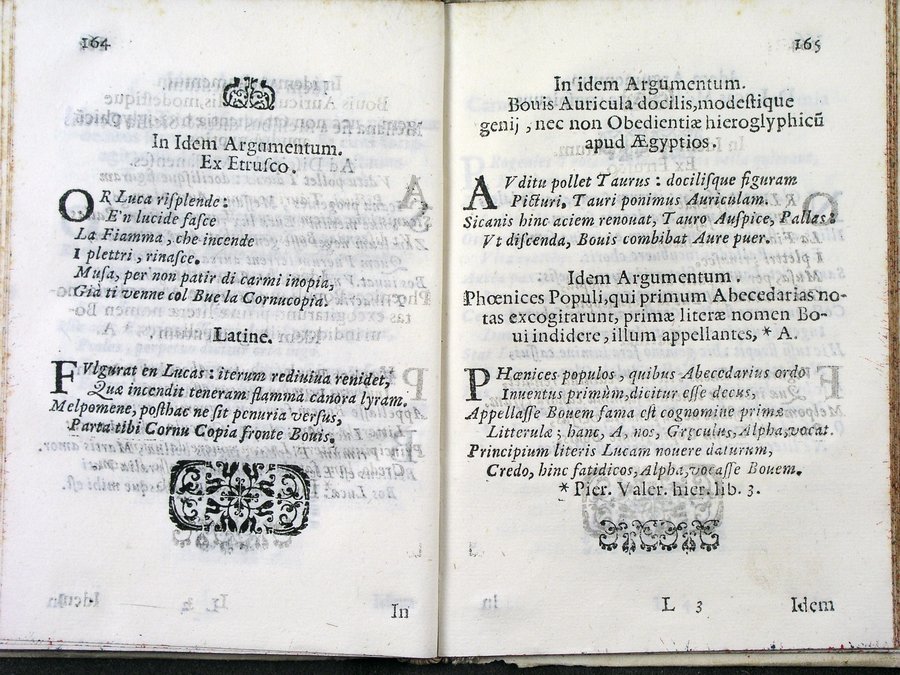 164
In Idem Argumentum.
Ex Etruſco.
OR Luca riſplende:
E'n lucide faſce
La Fiamma, che incende
I plettri, rinaſce.
Muſa, per non patir di carmi inopia,
Già ti venne col Bue la Cornucopia.
Latine.
FVlgurat en Lucas: iterum rediuiua renidet,
Quæ incendit teneram flamma canora lyram.
Melpomene, poſthac ne ſit penuria verſus,
Parta tibi Cornu Copia fronte Bouis.
In
165
In idem Argumentum.
Bouis Auricula docilis, modeſtique
genij, nec non Obedientiæ hieroglyphicū
apud Ægyptios.
AVditu pollet Taurus: dociliſque figuram
Picturi, Tauri ponimus Auriculam.
Sicanis hinc aciem renouat, Tauro Auſpice, Pallas:
Vt diſcenda, Bouis combibat Aure puer.
Idem Argumentum.
Phœnices Populi, qui primum Abecedarias no-
tas excogitarunt, primæ literæ nomen Bo-
ui indidere, illum appellantes, * A.
PHœnices populos, quibus Abecedarius ordo
Inuentus primùm, dicitur eſſe decus,
Appellaſſe Bouem fama eſt cognomine primæ
Litterulæ; hanc, A, nos, Græculus, Alpha, vocat.
Principium literis Lucam nouere daturum,
Credo, hinc fatidicos, Alpha, vocaſſe Bouem.
* Pier. Valer. hier. lib. 3.
L 3
Idem